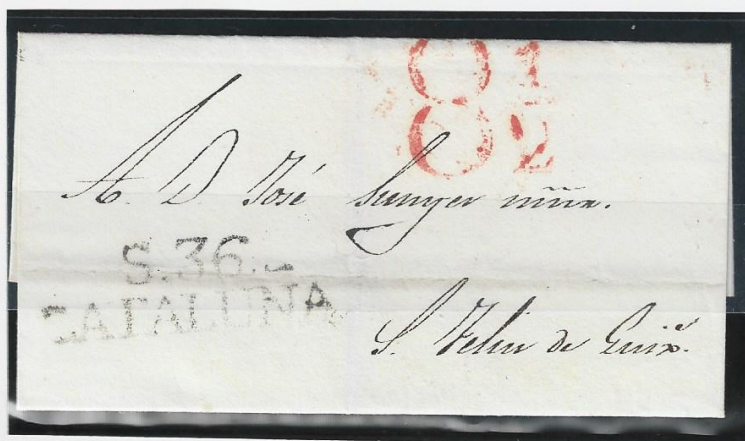 8 1
2
A. D. José Sunyer
S. 36.
CATALUÑA
S. Feliu de Guixˢ.